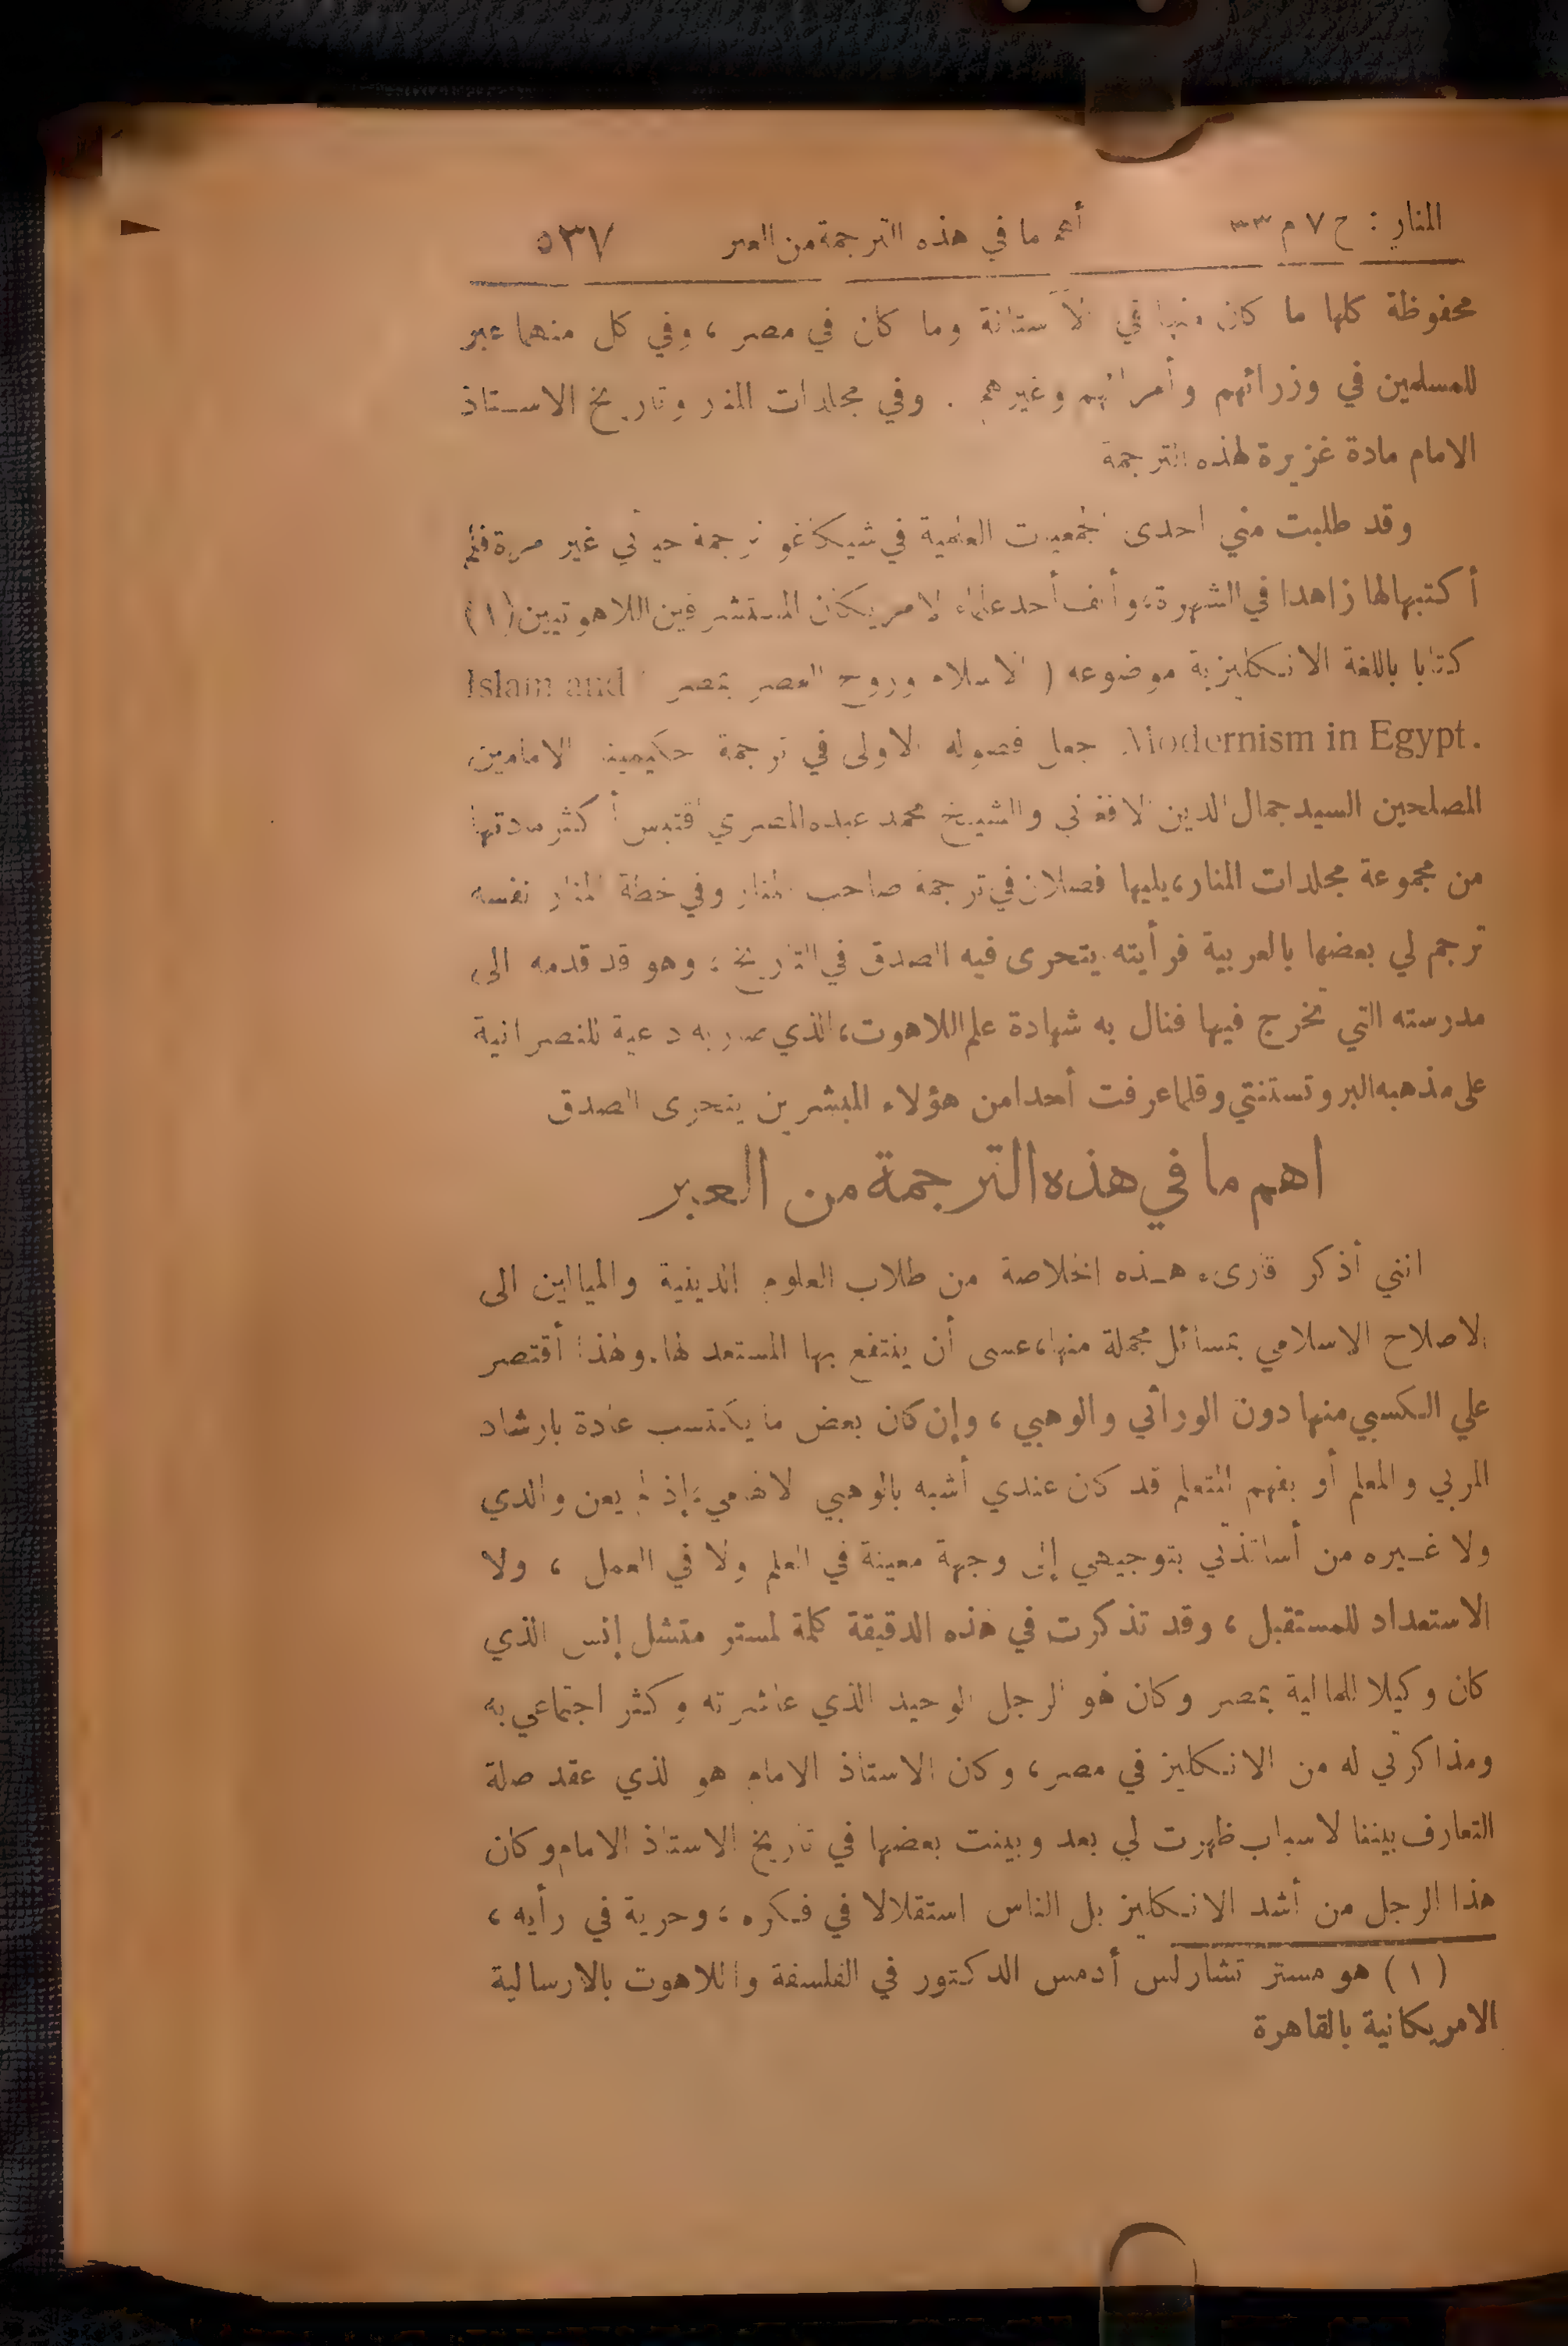 المنار : ج ٧ م ٣٣ أهم ما في هذه الترجمة من العبر ٥٣٧
محفوظة كلها ما كان منها في الآستانة وما كان في مصر ، وفي كل منهما عبر
للمسلمين في وزرائهم وأمرائهم وغيرهم . وفي مجلدات المنار وتاريخ الاستاذ
الامام مادة غزيرة لهذه الترجمة
وقد طلبت مني احدى الجمعيات العلمية في شيكاغو ترجمة حياتي غير مرة فلم
أكتبها لها زاهدا في الشهرة، وألف أحد علماء الامريكان المستشرقين اللاهوتيين (١)
كتابا باللغة الانكليزية موضوعه ( الاسلام وروح العصر بمصر Islam and
Modernism in Egypt. جعل فصوله الاولى في ترجمة حكيمينا الامامين
المصلحين السيد جمال الدين الافغاني والشيخ محمد عبده المصري اقتبس أكثر مادتها
من مجموعة مجلدات المنار، يليها فصلان في ترجمة صاحب المنار وفي خطة المنار نفسه
ترجم لي بعضها بالعربية فرأيته يتحرى فيه الصدق في التاريخ ، وهو قد قدمه الى
مدرسته التي تخرج فيها فنال به شهادة علم اللاهوت، الذي صار به داعية للنصرانية
على مذهبه البروتستنتي وقلما عرفت أحدا من هؤلاء المبشرين يتحرى الصدق
اهم ما في هذه الترجمة من العبر
انني أذكر قارىء هذه الخلاصة من طلاب العلوم الدينية والميالين الى
الاصلاح الاسلامي بمسائل مجملة منها، عسى أن ينتفع بها المستعد لها. ولهذا أقتصر
علي الكسبي منها دون الوراثي والوهبي ، وإن كان بعض ما يكتسب عادة بارشاد
المربي والمعلم أو بفهم المتعلم قد كان عندي أشبه بالوهبي الالهامي، إذ لم يعن والدي
ولا غيره من أساتذتي بتوجيهي إلى وجهة معينة في العلم ولا في العمل ، ولا
الاستعداد للمستقبل ، وقد تذكرت في هذه الدقيقة كلمة لمستر متشل إنس الذي
كان وكيلا للمالية بمصر وكان هو الرجل الوحيد الذي عاشرته وكثر اجتماعي به
ومذاكرتي له من الانكليز في مصر ، وكان الاستاذ الامام هو الذي عقد صلة
التعارف بيننا لاسباب ظهرت لي بعد وبينت بعضها في تاريخ الاستاذ الامام وكان
هذا الرجل من أشد الانكليز بل الناس استقلالا في فكره ، وحرية في رأيه ،
( ١ ) هو مستر تشارلس أدمس الدكتور في الفلسفة واللاهوت بالارسالية
الامريكانية بالقاهرة